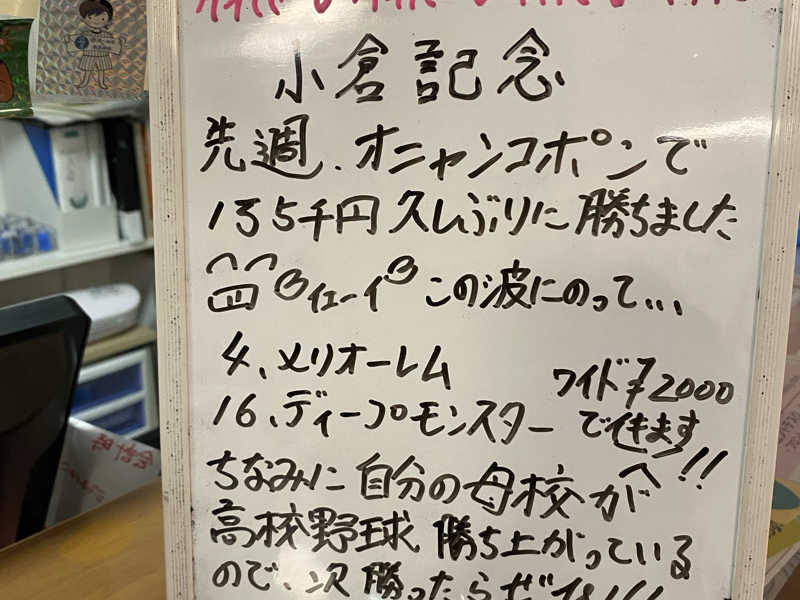 小倉記念
先週、オニャンコポンで
1万5千円久しぶりに勝ちました
イェーイ この波にのって...
4、メリオーレム
ワイド¥2000
16、ディープモンスター
できます!!
ちなみに自分の母校が
高校野球 勝ち上がっている
ので、次勝ったらぜひ!!